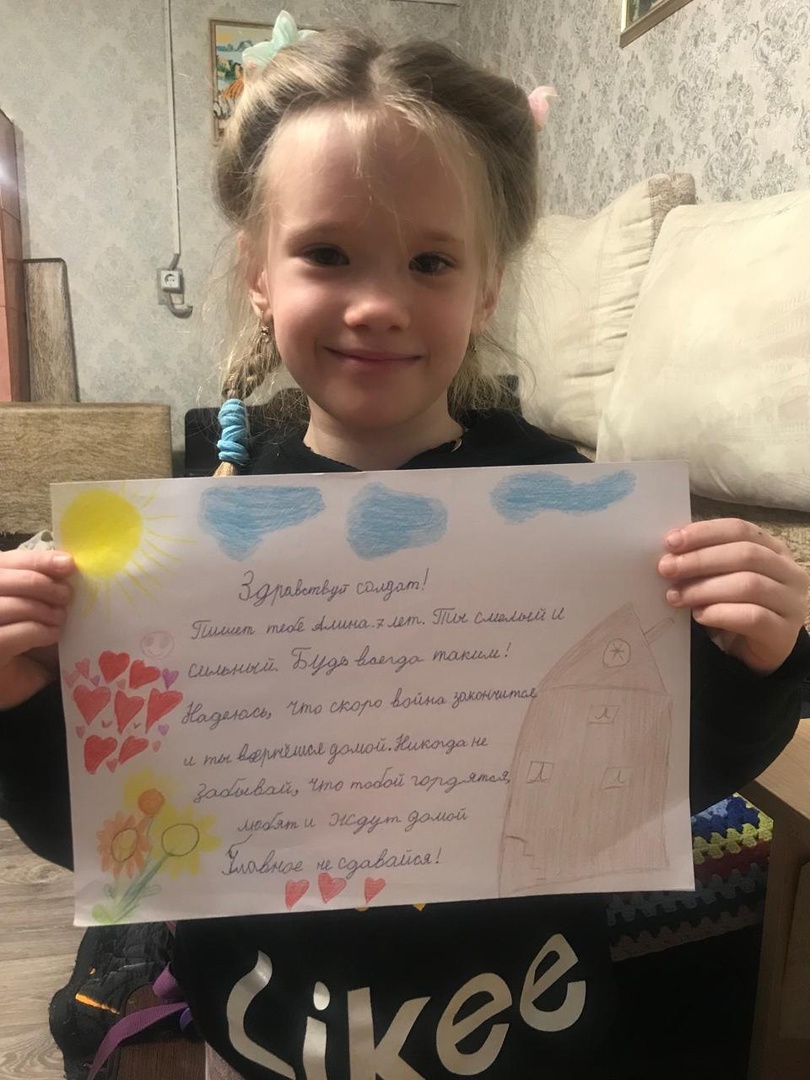 Здравствуй солдат!
Пишет тебе Алина 7 лет. Ты смелый и
сильный. Будь всегда таким!
Надеюсь, что скоро война закончится
и ты вернёшся домой. Никогда не
забывай, что тобой гордятся,
любят и ждут домой
Главное не сдавайся!
Likee